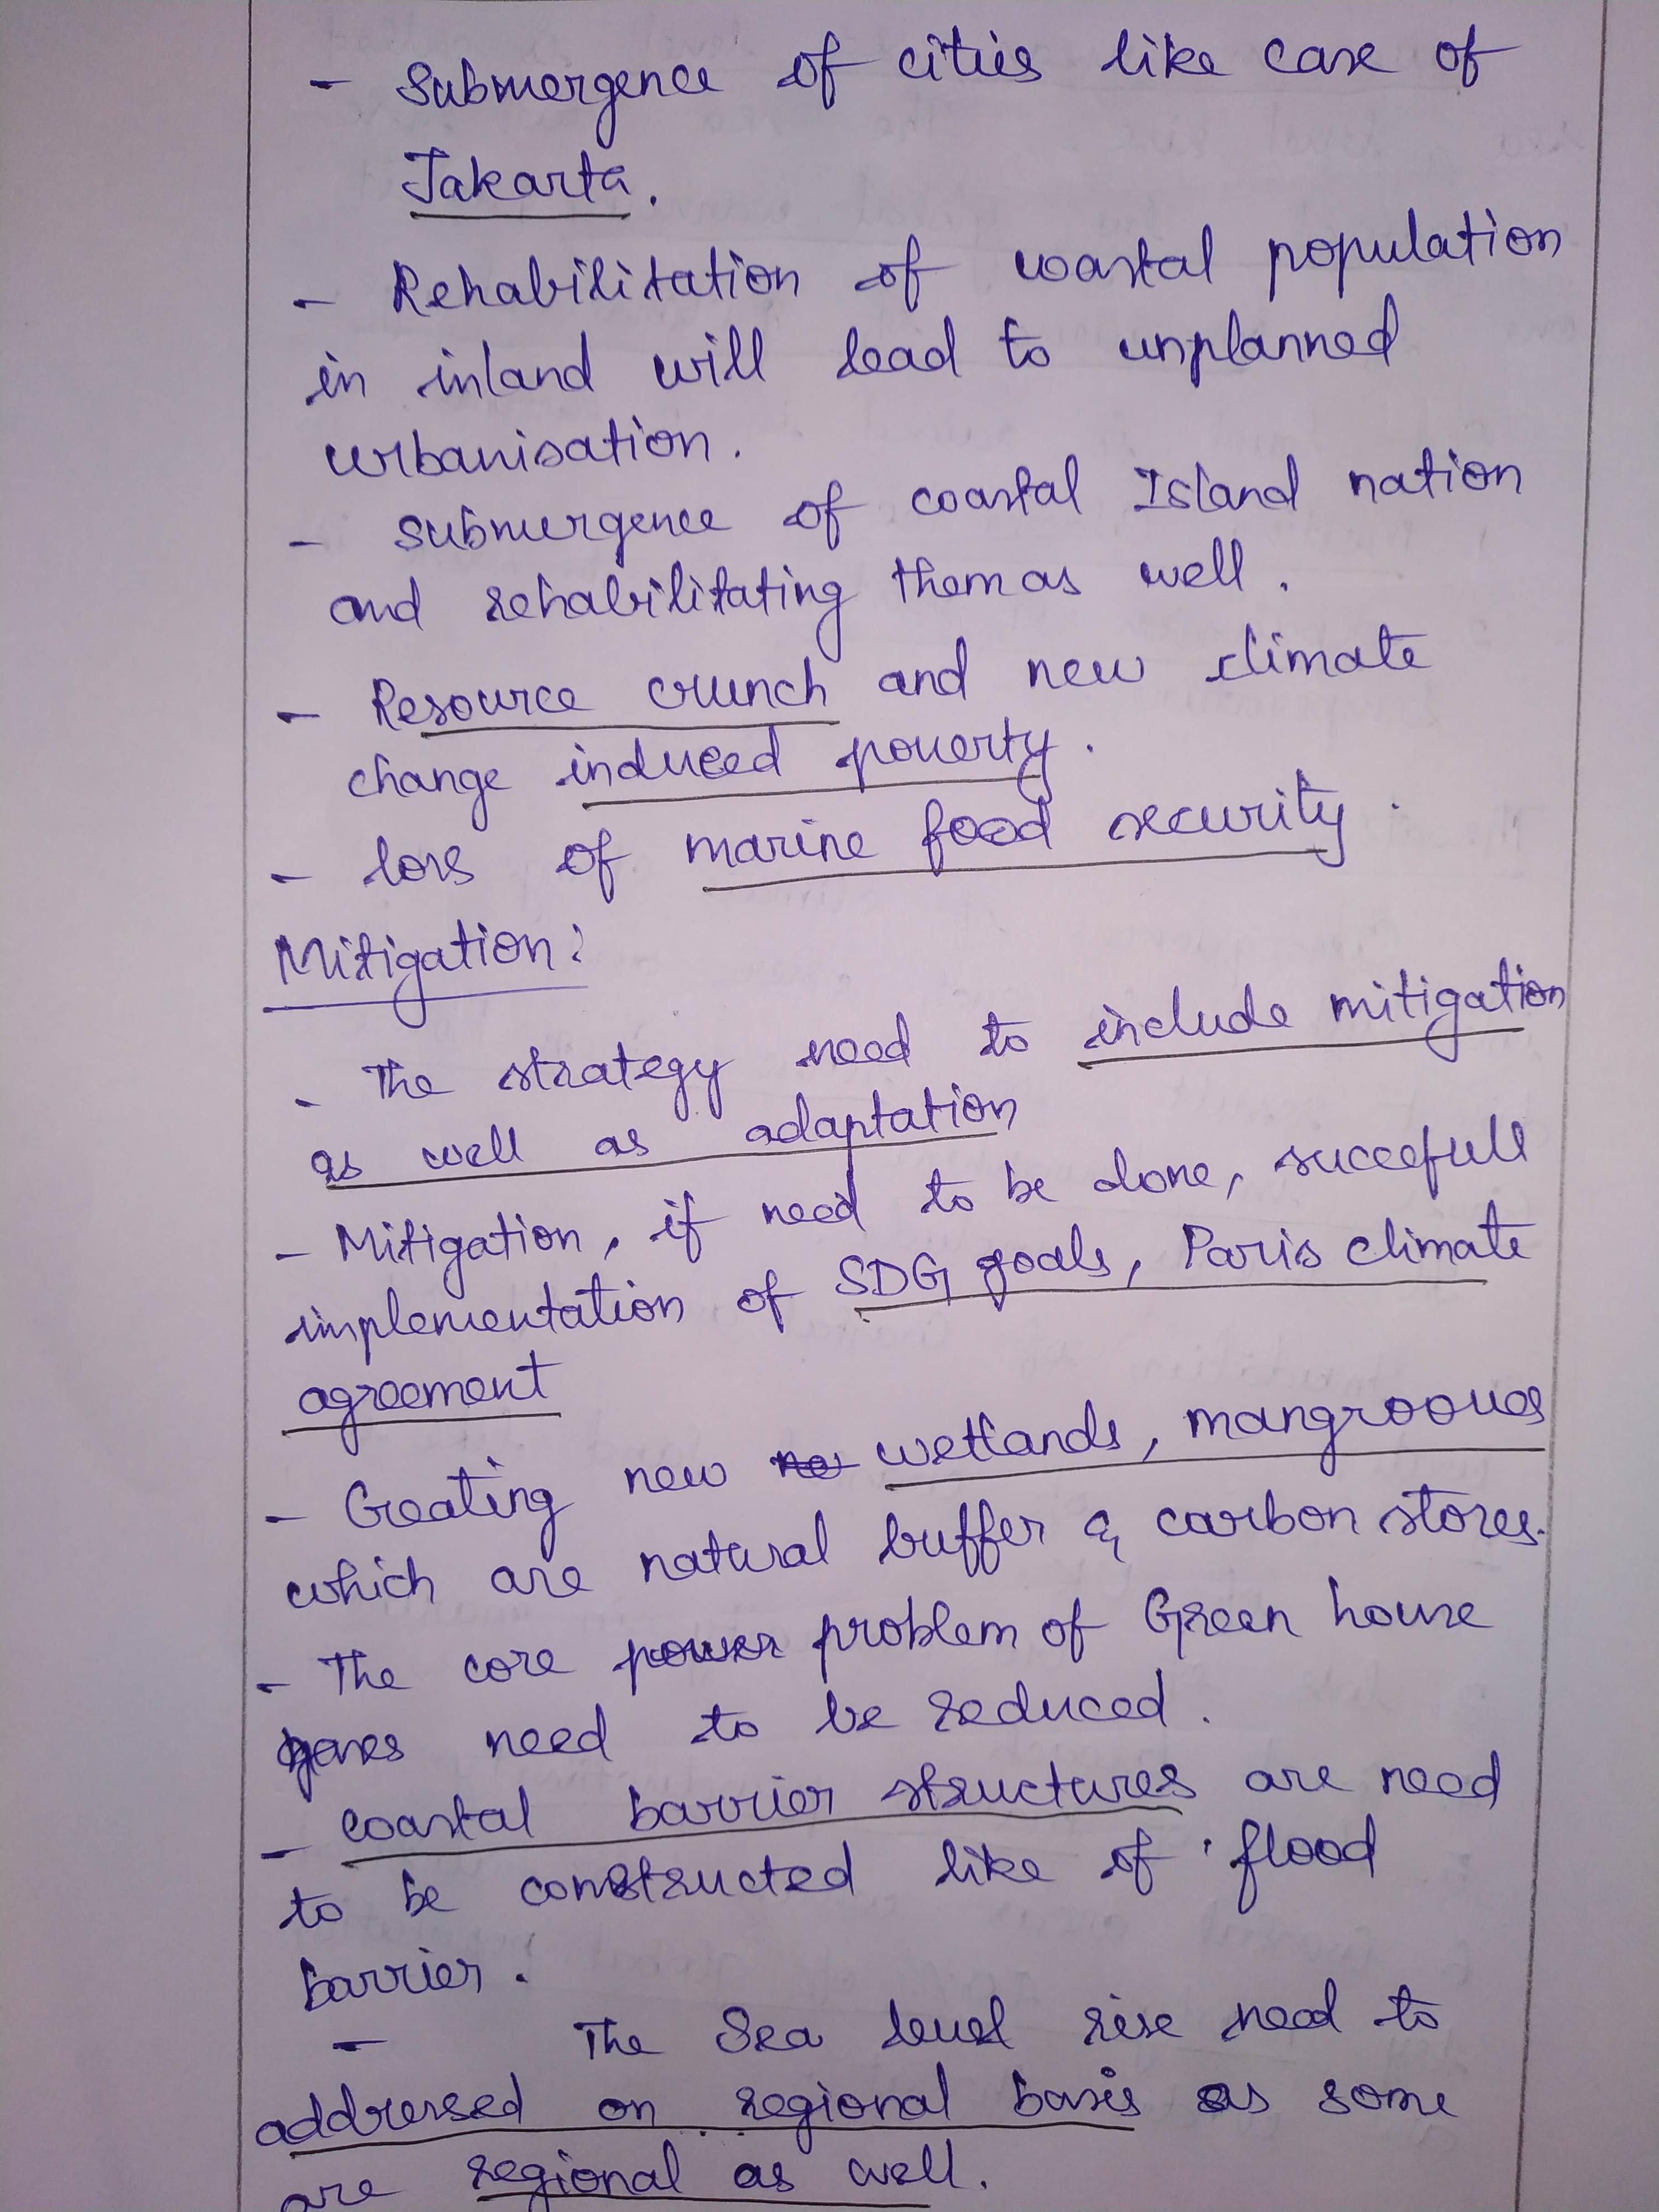 - Submergence of cities like case of
Jakarta.
- Rehabilitation of coastal population
in inland will lead to unplanned
urbanisation.
- Submergence of coastal Island nation
and rehabilitating them as well.
- Resource crunch and new climate
change induced poverty.
- loss of marine food security.
Mitigation:
- The strategy need to include mitigation
as well as adaptation
- Mitigation, if need to be done, succefull
implementation of SDG goals, Paris climate
agreement
- Creating new wetlands, mangrooves
which are natural buffer & carbon stores.
- The core problem of Green house
gases need to be reduced.
- coastal barrier structures are need
to be constructed like of flood
barrier.
- The Sea level rise need to
addressed on regional basis as some
are regional as well.